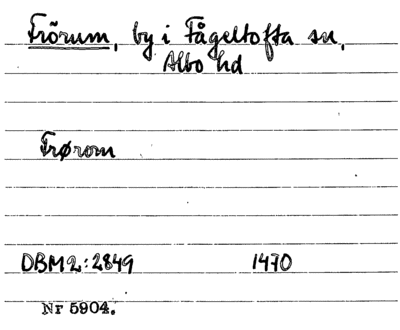 Frörum, by i Fågeltofta sn,
Albo hd
Frørom
DBM2:2849 1470
Nr 5904.